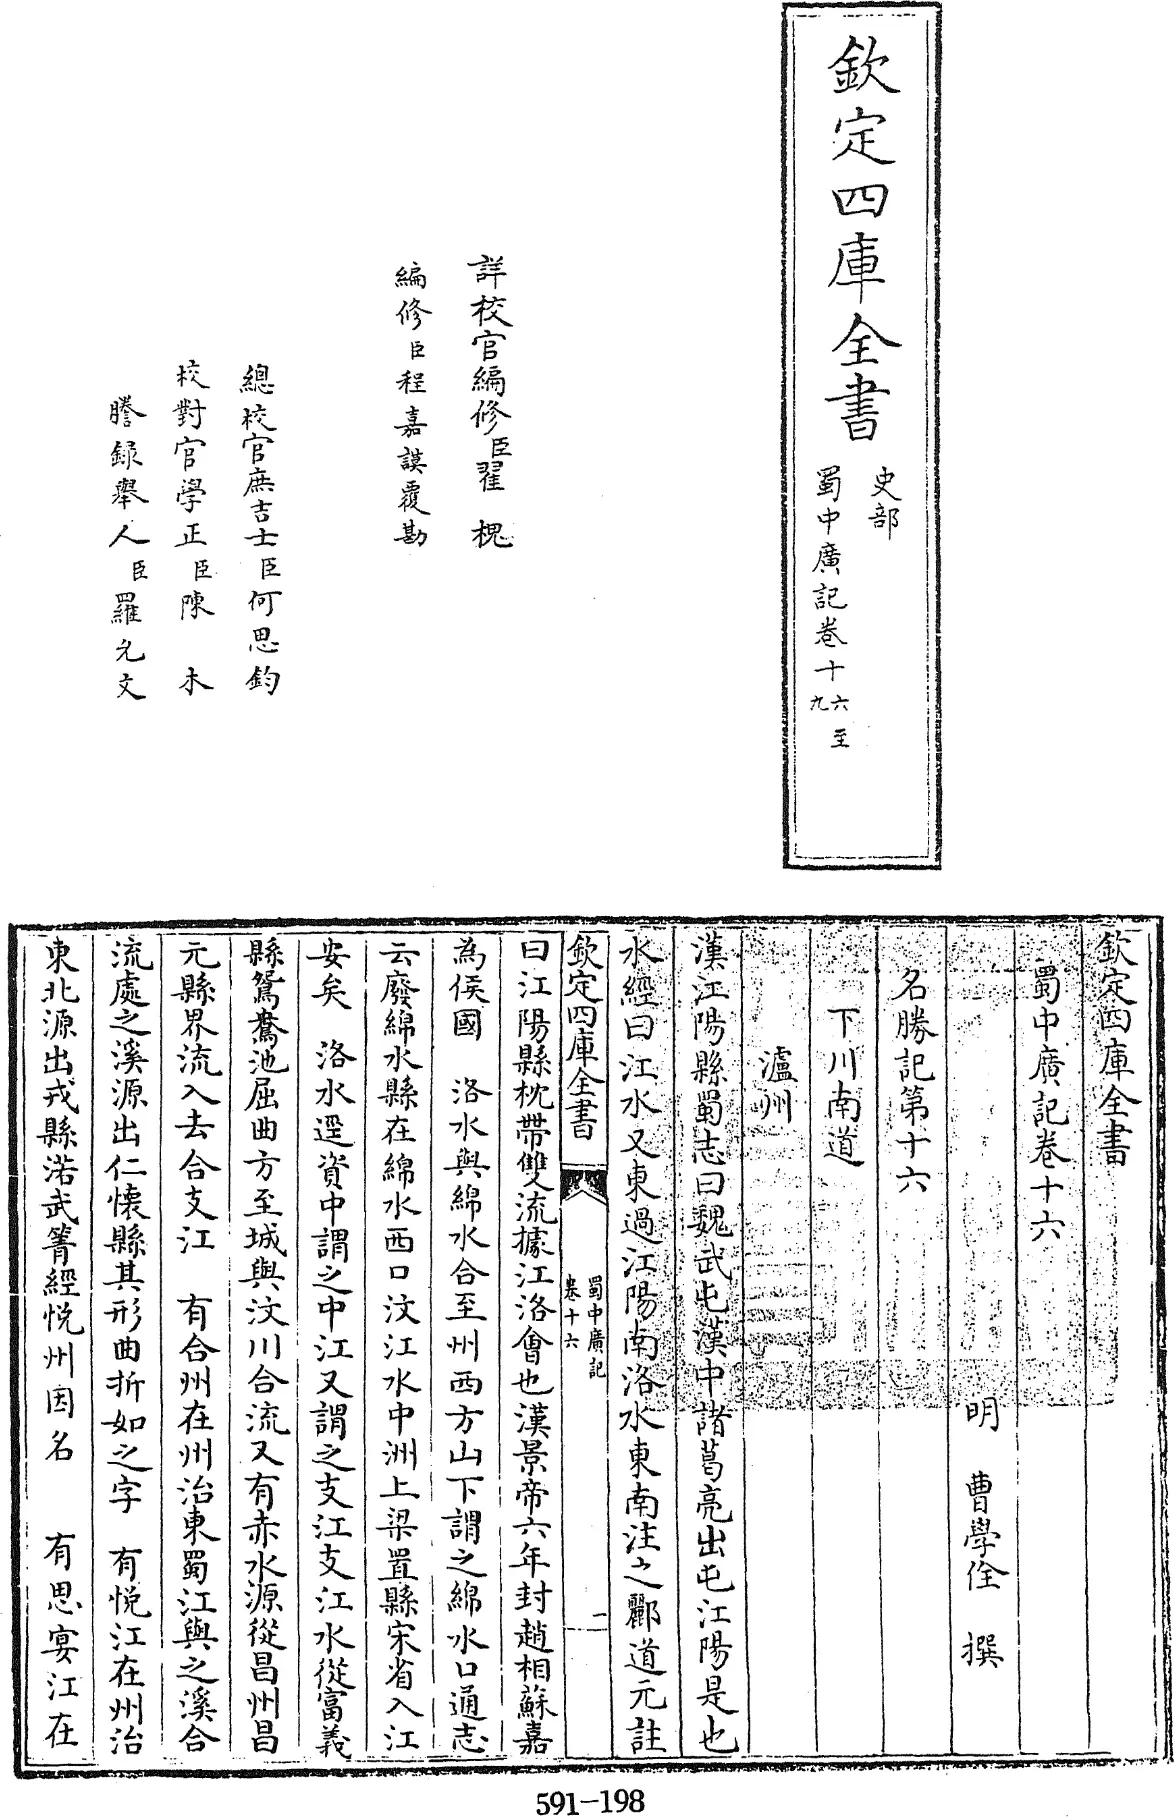 欽定四庫全書
史部
蜀中廣記卷十六至
九
詳校官編修臣翟槐
編修臣程嘉謨覆勘
總校官庶吉士臣何思鈞
校對官學正臣陳木
謄錄舉人臣羅允文
欽定四庫全書
蜀中廣記卷十六
明 曹學佺 撰
名勝記第十六
下川南道
瀘州
漢江陽縣蜀志曰魏武屯漢中諸葛亮出屯江陽是也
水經曰江水又東過江陽南洛水東南注之酈道元註
欽定四庫全書
蜀中廣記
卷十六
一
曰江陽縣枕帶雙流據江洛會也漢景帝六年封趙相蘇嘉
為侯國 洛水與綿水合至州西方山下謂之綿水口通志
云廢綿水縣在綿水西口汶江水中洲上梁置縣宋省入江
安矣 洛水逕資中謂之中江又謂之支江支江水從富義
縣鴛鴦池屈曲方至城與汶川合流又有赤水源從昌州昌
元縣界流入去合支江 有合州在州治東蜀江與之溪合
流處之溪源出仁懷縣其形曲折如之字 有悅江在州治
東北源出戎縣渃武箐經悅州因名 有思宴江在
591-198